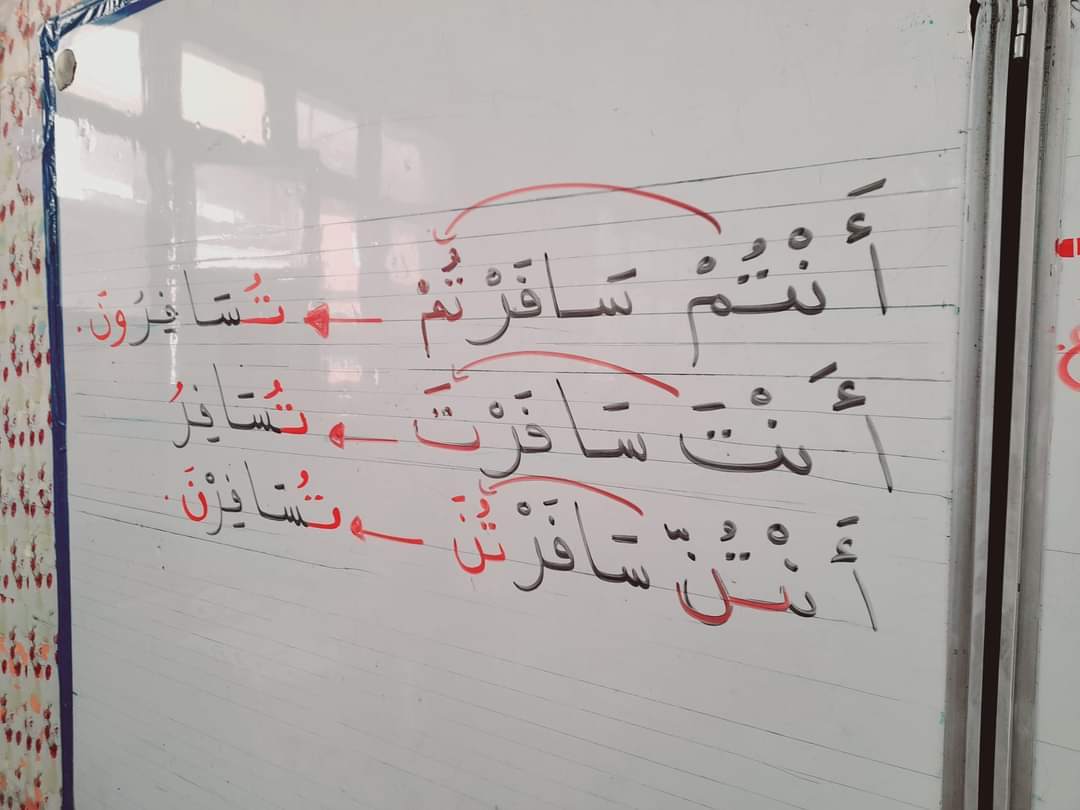 أَنْتُمْ سَافَرْتُمْ ← تُسَافِرُونَ.
أَنْتَ سَافَرْتَ ← تُسَافِرُ
أَنْتُنّ سَافَرْتُنَ ← تُسَافِرْنَ.